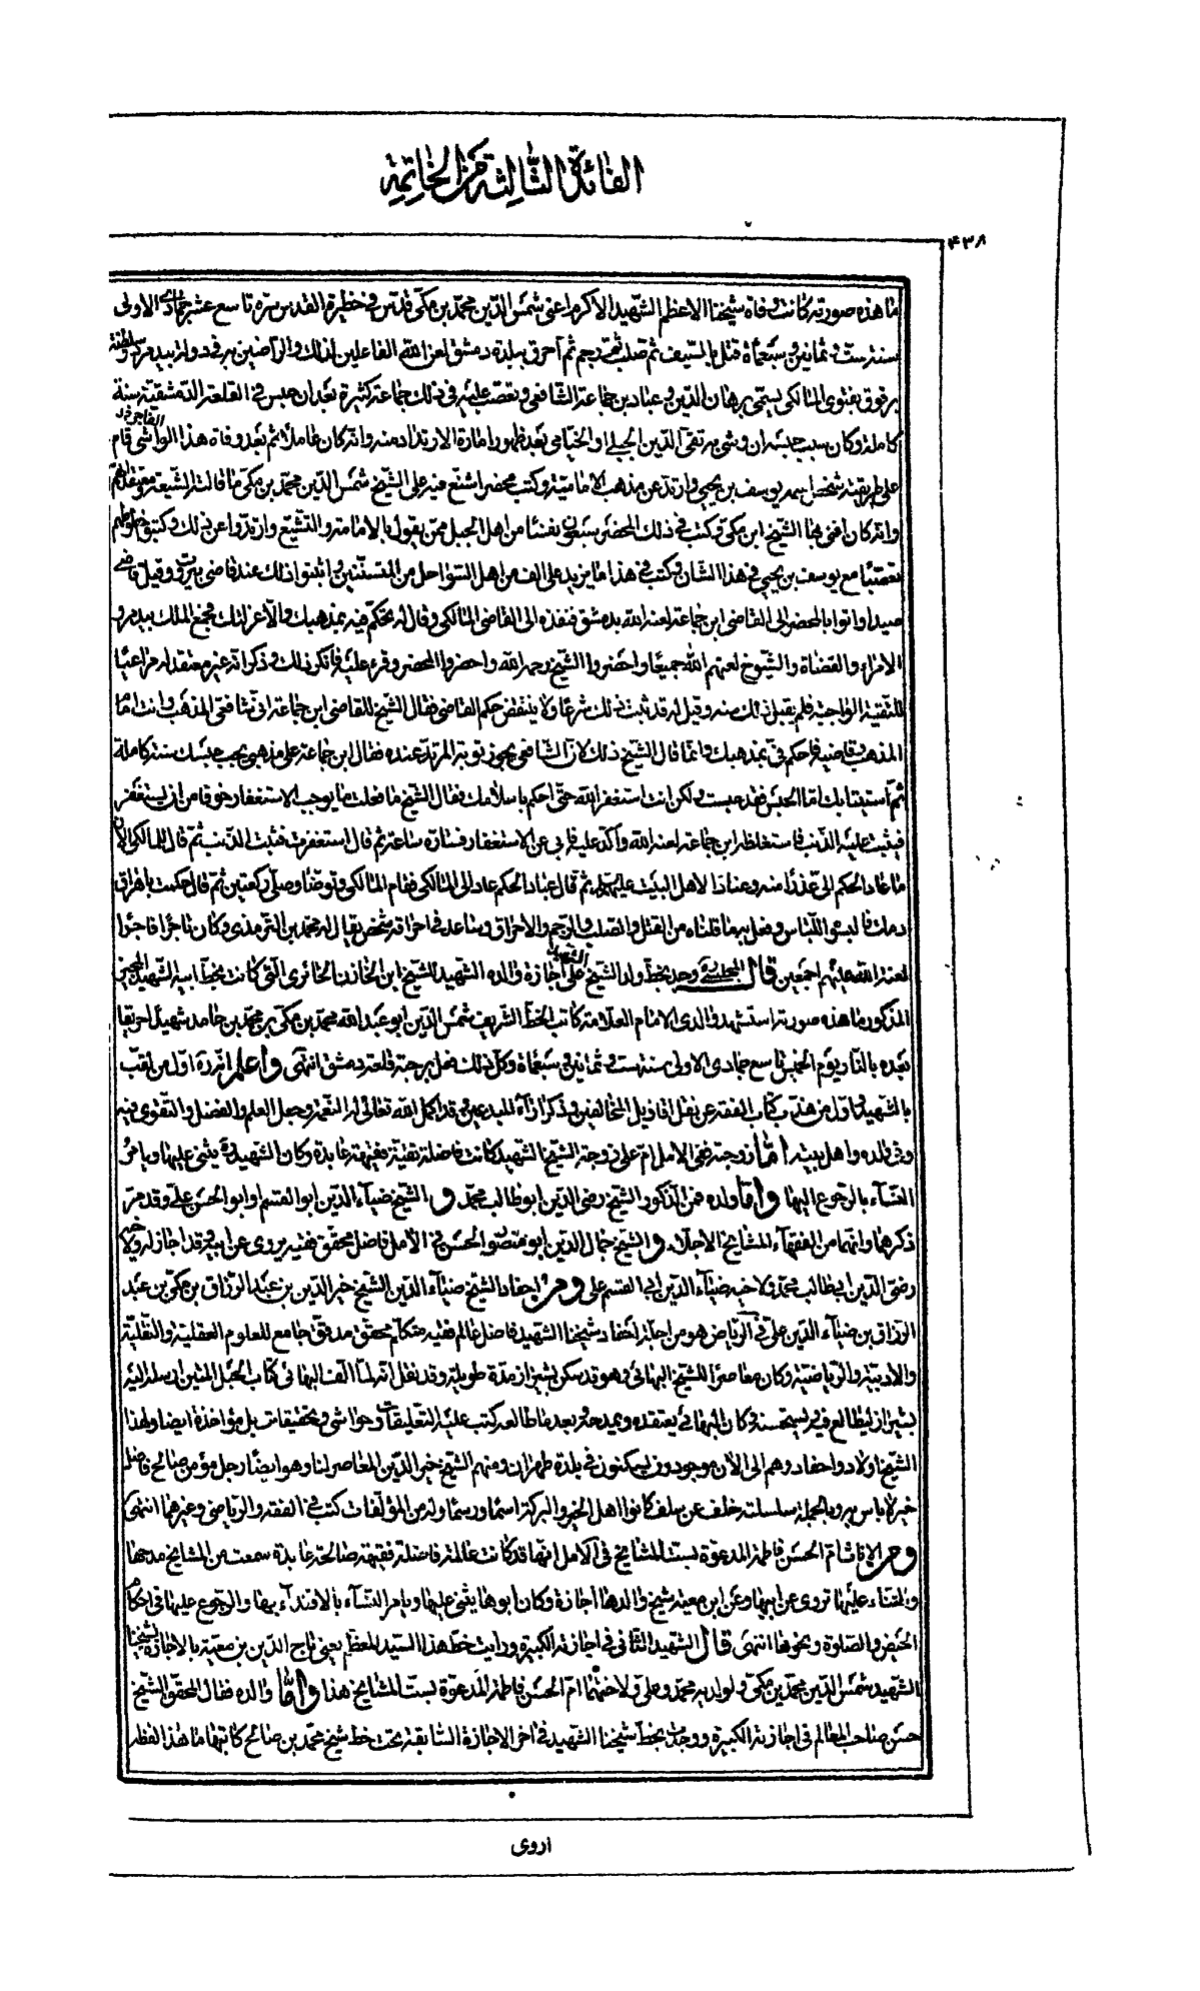 الفائدة الثالثة من الخاتمة
۴۳۸
ما هذه صورته كانت وفاة شيخنا الاعظم الشهيد الاكرم اعنى شمس الدين محمد بن مكى قدس فى حظيرة القدس سره تاسع عشر جمادى الاولى
سنة ست وثمانين وسبعمأة قتل بالسيف ثم صلب ثم رجم ثم احرق ببلدة دمشق لعن الله الفاعلين لذلك والراضين به فى دولة بيدمر وسلطنة
برقوق بفتوى المالكى يسمى برهان الدين وعباد بن جماعة الشافعى وتعصب عليه فى ذلك جماعة كثيرة بعد ان حبس فى القلعة الدمشقية سنة
كاملة وكان سبب حبسه ان وشى به تقى الدين الجبلى او الخيامى بعد ظهور امارة الارتداد منه وانه كان عاملا ثم بعد وفاة هذا الواشى الفاجر قام
على طريقته شخص اسمه يوسف بن يحيى وارتد عن مذهب الامامية وكتب محضرا شنع فيه على الشيخ شمس الدين محمد بن مكى ما قالته الشيعة ومعتقداتهم
وانه كان افتى بها الشيخ ابن مكى وكتب فى ذلك المحضر سبعون نفسا من اهل الجبل ممن يقول بالامامة والتشيع وارتدوا عن ذلك وكتبوا خطوطهم
تعصبا مع يوسف بن يحيى فى هذا الشان وكتب فى هذا ما يزيد على الف من اهل السواحل من المتسننين واثبتوا ذلك عند قاضى بيروت وقيل قاضى
صيدا واتوا بالمحضر الى القاضى ابن جماعة لعنه الله بدمشق فنفذه الى القاضى المالكى وقال له تحكم فيه بمذهبك والا عزلتك فجمع الملك بيدمر
الامراء والقضاة والشيوخ لعنهم الله جميعا واحضروا الشيخ رحمه الله واحضروا المحضر وقرء عليه فانكر ذلك وذكر انه غير معتقد له مراعيا
للتقية الواجبة فلم يقبل ذلك منه وقيل له قد ثبت ذلك شرعا ولا ينتقض حكم القاضى فقال الشيخ للقاضى ابن جماعة انى شافعى المذهب وانت امام
المذهب وقاضيه فاحكم فى بمذهبك وانما قال الشيخ ذلك لان الشافعى يجوز توبة المرتد عنده فقال ابن جماعة على مذهبى يجب حبسك سنة كاملة
ثم استتابتك اما الحبس فقد حبست ولكن انت استغفر الله حتى احكم باسلامك فقال الشيخ ما فعلت ما يوجب الاستغفار خوفا من ان يستغفر
فيثبت عليه الذنب فاستغلظه ابن جماعة لعنه الله واكد عليه فابى عن الاستغفار فساره ساعة ثم قال استغفرت فثبت الذنب ثم قال للمالكى الان
ما عاد الحكم الى غدرا منه وعنادا لاهل البيت عليهم ثم قال عباد الحكم عاد الى المالكى فقام المالكى وتوضأ وصلى ركعتين ثم قال حكمت باهراق
دمك فالبسوا اللباس وفعل به ما قلناه من القتل والصلب والرجم والاحراق وساعد فى احراقه شخص يقال له محمد بن الترمذى وكان تاجرا فاجرا
لعنة الله عليهم اجمعين قال المجلسى وجد بخط ولد الشيخ على اجازة والده الشهيد للشيخ ابن الخازن الحائرى التى كانت بخط ابيه الشهيد المجيز
المذكور ما هذه صورته استشهد والدى الامام العلامة كاتب الخط الشريف شمس الدين ابو عبد الله محمد بن مكى بن محمد بن حامد شهيدا حريقا
بعده بالنار يوم الخميس تاسع جمادى الاولى سنة ست وثمانين وسبعمأة وكل ذلك فعل برحبة قلعة دمشق انتهى واعلم انه ره اول من لقب
بالشهيد واول من هذب كتاب الفقه عن نقل اقاويل المخالفين وذكر اراء المبدعين وقد اكمل الله تعالى له النعمة وجعل العلم والفضل والتقوى فيه
وفى ولده واهل بيته اما زوجته ففى الامل ام على زوجة الشيخ الشهيد كانت فاضلة تقية فقيهة عابدة وكان الشهيد ره يثنى عليها ويامر
النساء بالرجوع اليها واما ولده فمن الذكور الشيخ رضى الدين ابو طالب محمد و الشيخ ضياء الدين ابو القسم او ابو الحسن على وقد مر
ذكرهما وانهما من الفقهاء المشايخ الاجلاء و الشيخ جمال الدين ابو منصور الحسن فى الامل فاضل محقق فقيه يروى عن ابيه وقد اجاز له ولاخيه
رضى الدين ابى طالب محمد ولاخيه ضياء الدين ابى القسم على ومن احفاد الشيخ ضياء الدين الشيخ خير الدين بن عبد الرزاق بن مكى بن عبد
الرزاق بن ضياء الدين على فى الرياض هو من اجلة احفاد شيخنا الشهيد فاضل عالم فقيه متكلم محقق مدقق جامع للعلوم العقلية والنقلية
والادبية والرياضية وكان معاصرا للشيخ البهائى وهو قد سكن بشيراز مدة طويلة وقد نقل انه لما الف البهائى كتاب الحبل المتين ارسله اليه
بشيراز ليطالع فيه ليستحسنه وكان البهائى يعتقده ويمدحه وبعد ما طالعه كتب عليه التعليقات وحواشى وتحقيقات بل مؤاخذة ايضا ولهذا
الشيخ اولاد واحفاد وهم الى الان موجودون يسكنون فى بلدة طهران ومنهم الشيخ خير الدين المعاصر لنا وهو ايضا رجل مؤمن صالح فاضل
خير لا باس به وبالجملة سلسلته خلف عن سلف كانوا اهل الخير والبركة اسما ورسما وله من المؤلفات كتب فى الفقه والرياضى وغيرهما انتهى
ومن الاناث ام الحسن فاطمة المدعوة بست المشايخ فى الامل انها قد كانت عالمة فاضلة فقيهة صالحة عابدة سمعت من المشايخ مدحها
والثناء عليها تروى عن ابيها وعن ابن معية شيخ والدها اجازة وكان ابوها يثنى عليها ويامر النساء بالاقتداء بها والرجوع عليها فى احكام
الحيض والصلوة ونحوها انتهى قال الشهيد الثانى فى اجازته الكبيرة ورايت خط هذا السيد المعظم يعنى تاج الدين بن معية بالاجازة لشيخنا
الشهيد شمس الدين محمد بن مكى ولولديه محمد وعلى ولاختهما ام الحسن فاطمة المدعوة بست المشايخ هذا واما والده فقال المحقق الشيخ
حسن صاحب المعالم فى اجازته الكبيرة ووجدت بخط شيخنا الشهيد فى اخر الاجازة السابقة تحت خط شيخ محمد بن صالح كاتبها ما هذا لفظه
اروى